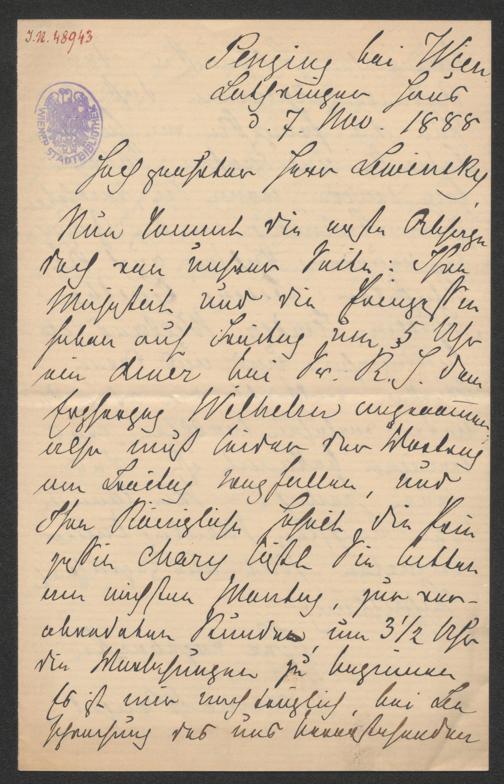 J.N. 48943
WIENER STADTBIBLIOTHEK
Penzing bei Wien
Lothringer Haus
d. 7 Nov. 1888
Hochgeehrter Herr Lewinsky,
Nun kommt die erste Absage
doch von unserer Seite: Ihre
Majestät und die Prinzessin
haben auf Freitag um 5 Uhr
ein diner bei Sr. K. H. dem
Erzherzog Wilhelm angenommen,
also muß leider der Vortrag
am Freitag wegfallen, und
Ihre Königliche Hoheit die Prin
zessin Mary läßt Sie bitten
am nächsten Montag, zur ver-
abredeten Stunde, um 3 1/2 Uhr
die Vorlesungen zu beginnen
Es ist mir nachträglich, bei Be
sprechung des uns bevorstehenden